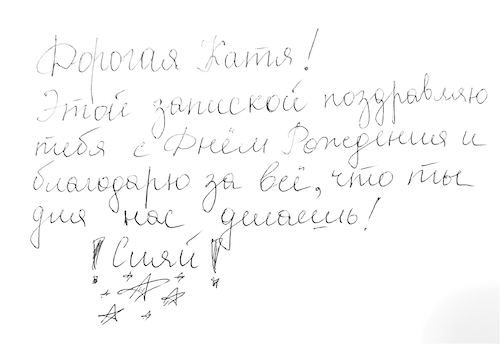 Дорогая Катя!
Этой запиской поздравляю
тебя с Днём Рождения и
благодарю за всё, что ты
для нас делаешь!
! Сияй !